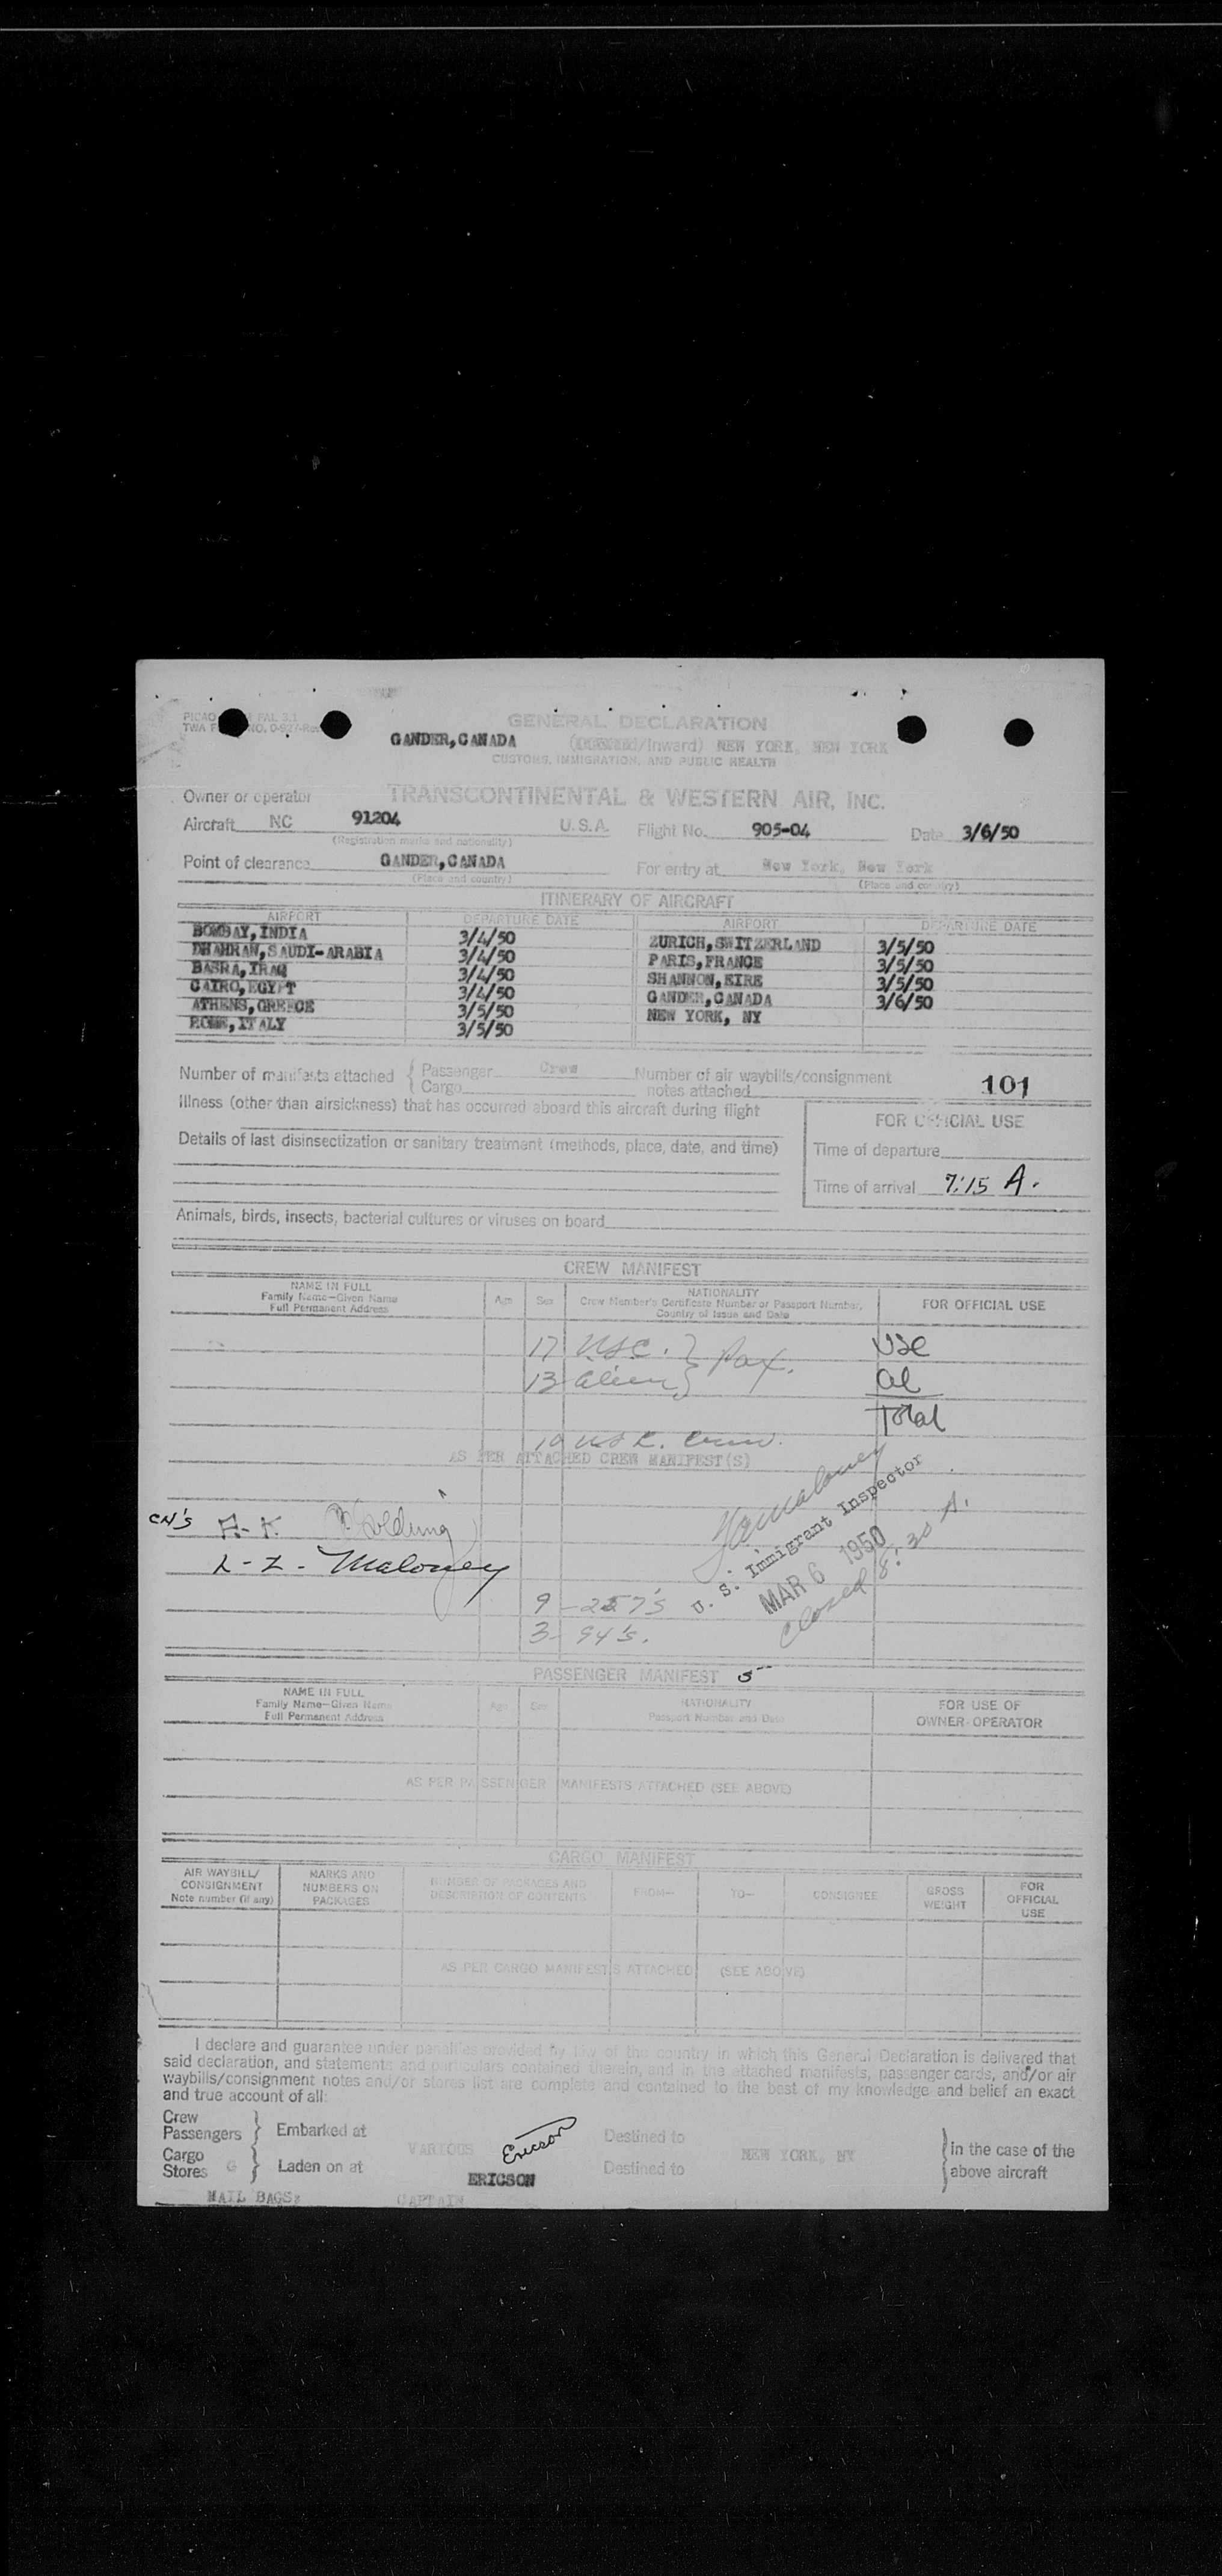 GENERAL DECLARATION
GANDER,CANADA /Inward) NEW YORK, NEW YORK
CUSTOMS, IMMIGRATION, AND PUBLIC HEALTH
Owner or operator TRANSCONTINENTAL & WESTERN AIR, INC.
Aircraft NC 91204 U.S.A. Flight No. 905-04 Date 3/6/50
(Registration marks and nationality)
Point of clearance GANDER,CANADA For entry at New York, New York
(Place and country) (Place and country)
ITINERARY OF AIRCRAFT
AIRPORT DEPARTURE DATE AIRPORT DEPARTURE DATE
BOMBAY,INDIA 3/4/50 ZURICH,SWITZERLAND 3/5/50
DHAHRAN,SAUDI-ARABIA 3/4/50 PARIS,FRANCE 3/5/50
BASRA,IRAQ 3/4/50 SHANNON,EIRE 3/5/50
CAIRO,EGYPT 3/4/50 GANDER,CANADA 3/6/50
ATHENS,GREECE 3/5/50 NEW YORK, NY
ROME,ITALY 3/5/50
Number of manifests attached { Passenger Crew Number of air waybills/consignment
Cargo notes attached 101
Illness (other than airsickness) that has occurred aboard this aircraft during flight
FOR OFFICIAL USE
Details of last disinsectization or sanitary treatment (methods, place, date, and time)
Time of departure
Time of arrival 7:15 A.
Animals, birds, insects, bacterial cultures or viruses on board
CREW MANIFEST
NAME IN FULL
Family Name—Given Name
Full Permanent Address
Age Sex
NATIONALITY
Crew Member's Certificate Number or Passport Number,
Country of Issue and Date
FOR OFFICIAL USE
17 USC. } Pax. USC
13 alien } al
Total
10 USC. Crew.
AS PER ATTACHED CREW MANIFEST(S)
U. S. Immigrant Inspector
MAR 6 1950
closed 8:30 A.
CN's
L-Z- Maloney
9 - 257's
3 - 94's.
PASSENGER MANIFEST 5
NAME IN FULL
Family Name—Given Name
Full Permanent Address
Age Sex
NATIONALITY
Passport Number and Date
FOR USE OF
OWNER-OPERATOR
AS PER PASSENGER MANIFESTS ATTACHED (SEE ABOVE)
CARGO MANIFEST
AIR WAYBILL/
CONSIGNMENT
Note number (if any)
MARKS AND
NUMBERS ON
PACKAGES
NUMBER OF PACKAGES AND
DESCRIPTION OF CONTENTS
FROM— TO— CONSIGNEE
GROSS
WEIGHT
FOR
OFFICIAL
USE
AS PER CARGO MANIFESTS ATTACHED (SEE ABOVE)
I declare and guarantee under penalties provided by law of the country in which this General Declaration is delivered that
said declaration, and statements and particulars contained therein, and in the attached manifests, passenger cards, and/or air
waybills/consignment notes and/or stores list are complete and contained to the best of my knowledge and belief an exact
and true account of all:
Crew
Passengers } Embarked at VARIOUS Ericson Destined to NEW YORK, NY } in the case of the
Cargo
Stores } Laden on at Destined to above aircraft
ERICSON
MAIL BAGS: CAPTAIN